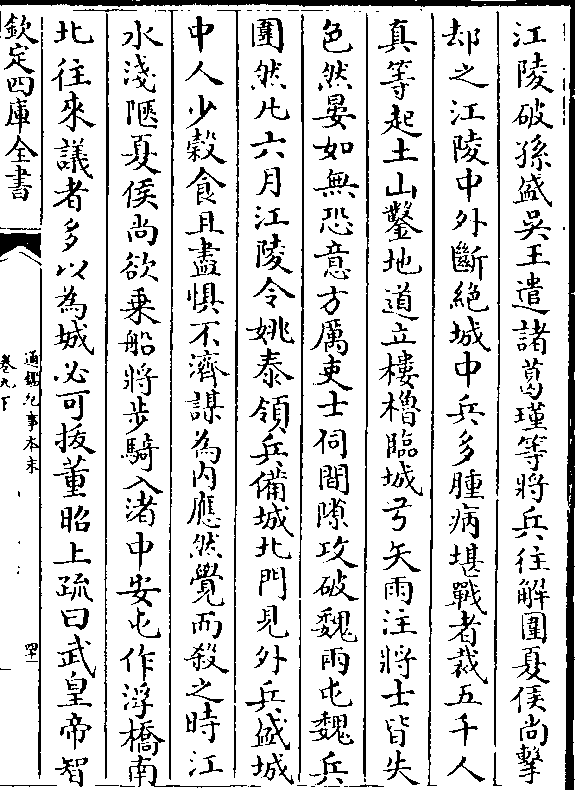 江陵破孫盛吳王遣諸葛瑾等將兵往解圍夏侯尚擊
却之江陵中外斷絶城中兵多腫病堪戰者裁五千人
真等起土山鑿地道立樓櫓臨城弓矢雨注將士皆失
色然晏如無恐意方厲吏士伺間隙攻破魏兩屯魏兵
圍然凡六月江陵令姚泰領兵備城北門見外兵盛城
中人少穀食且盡懼不濟謀為内應然覺而殺之時江
水淺陿夏侯尚欲乗船將步騎入渚中安屯作浮橋南
北往來議者多以為城必可拔董昭上疏曰武皇帝智
欽定四庫全書
通鑑紀事本末
卷九下